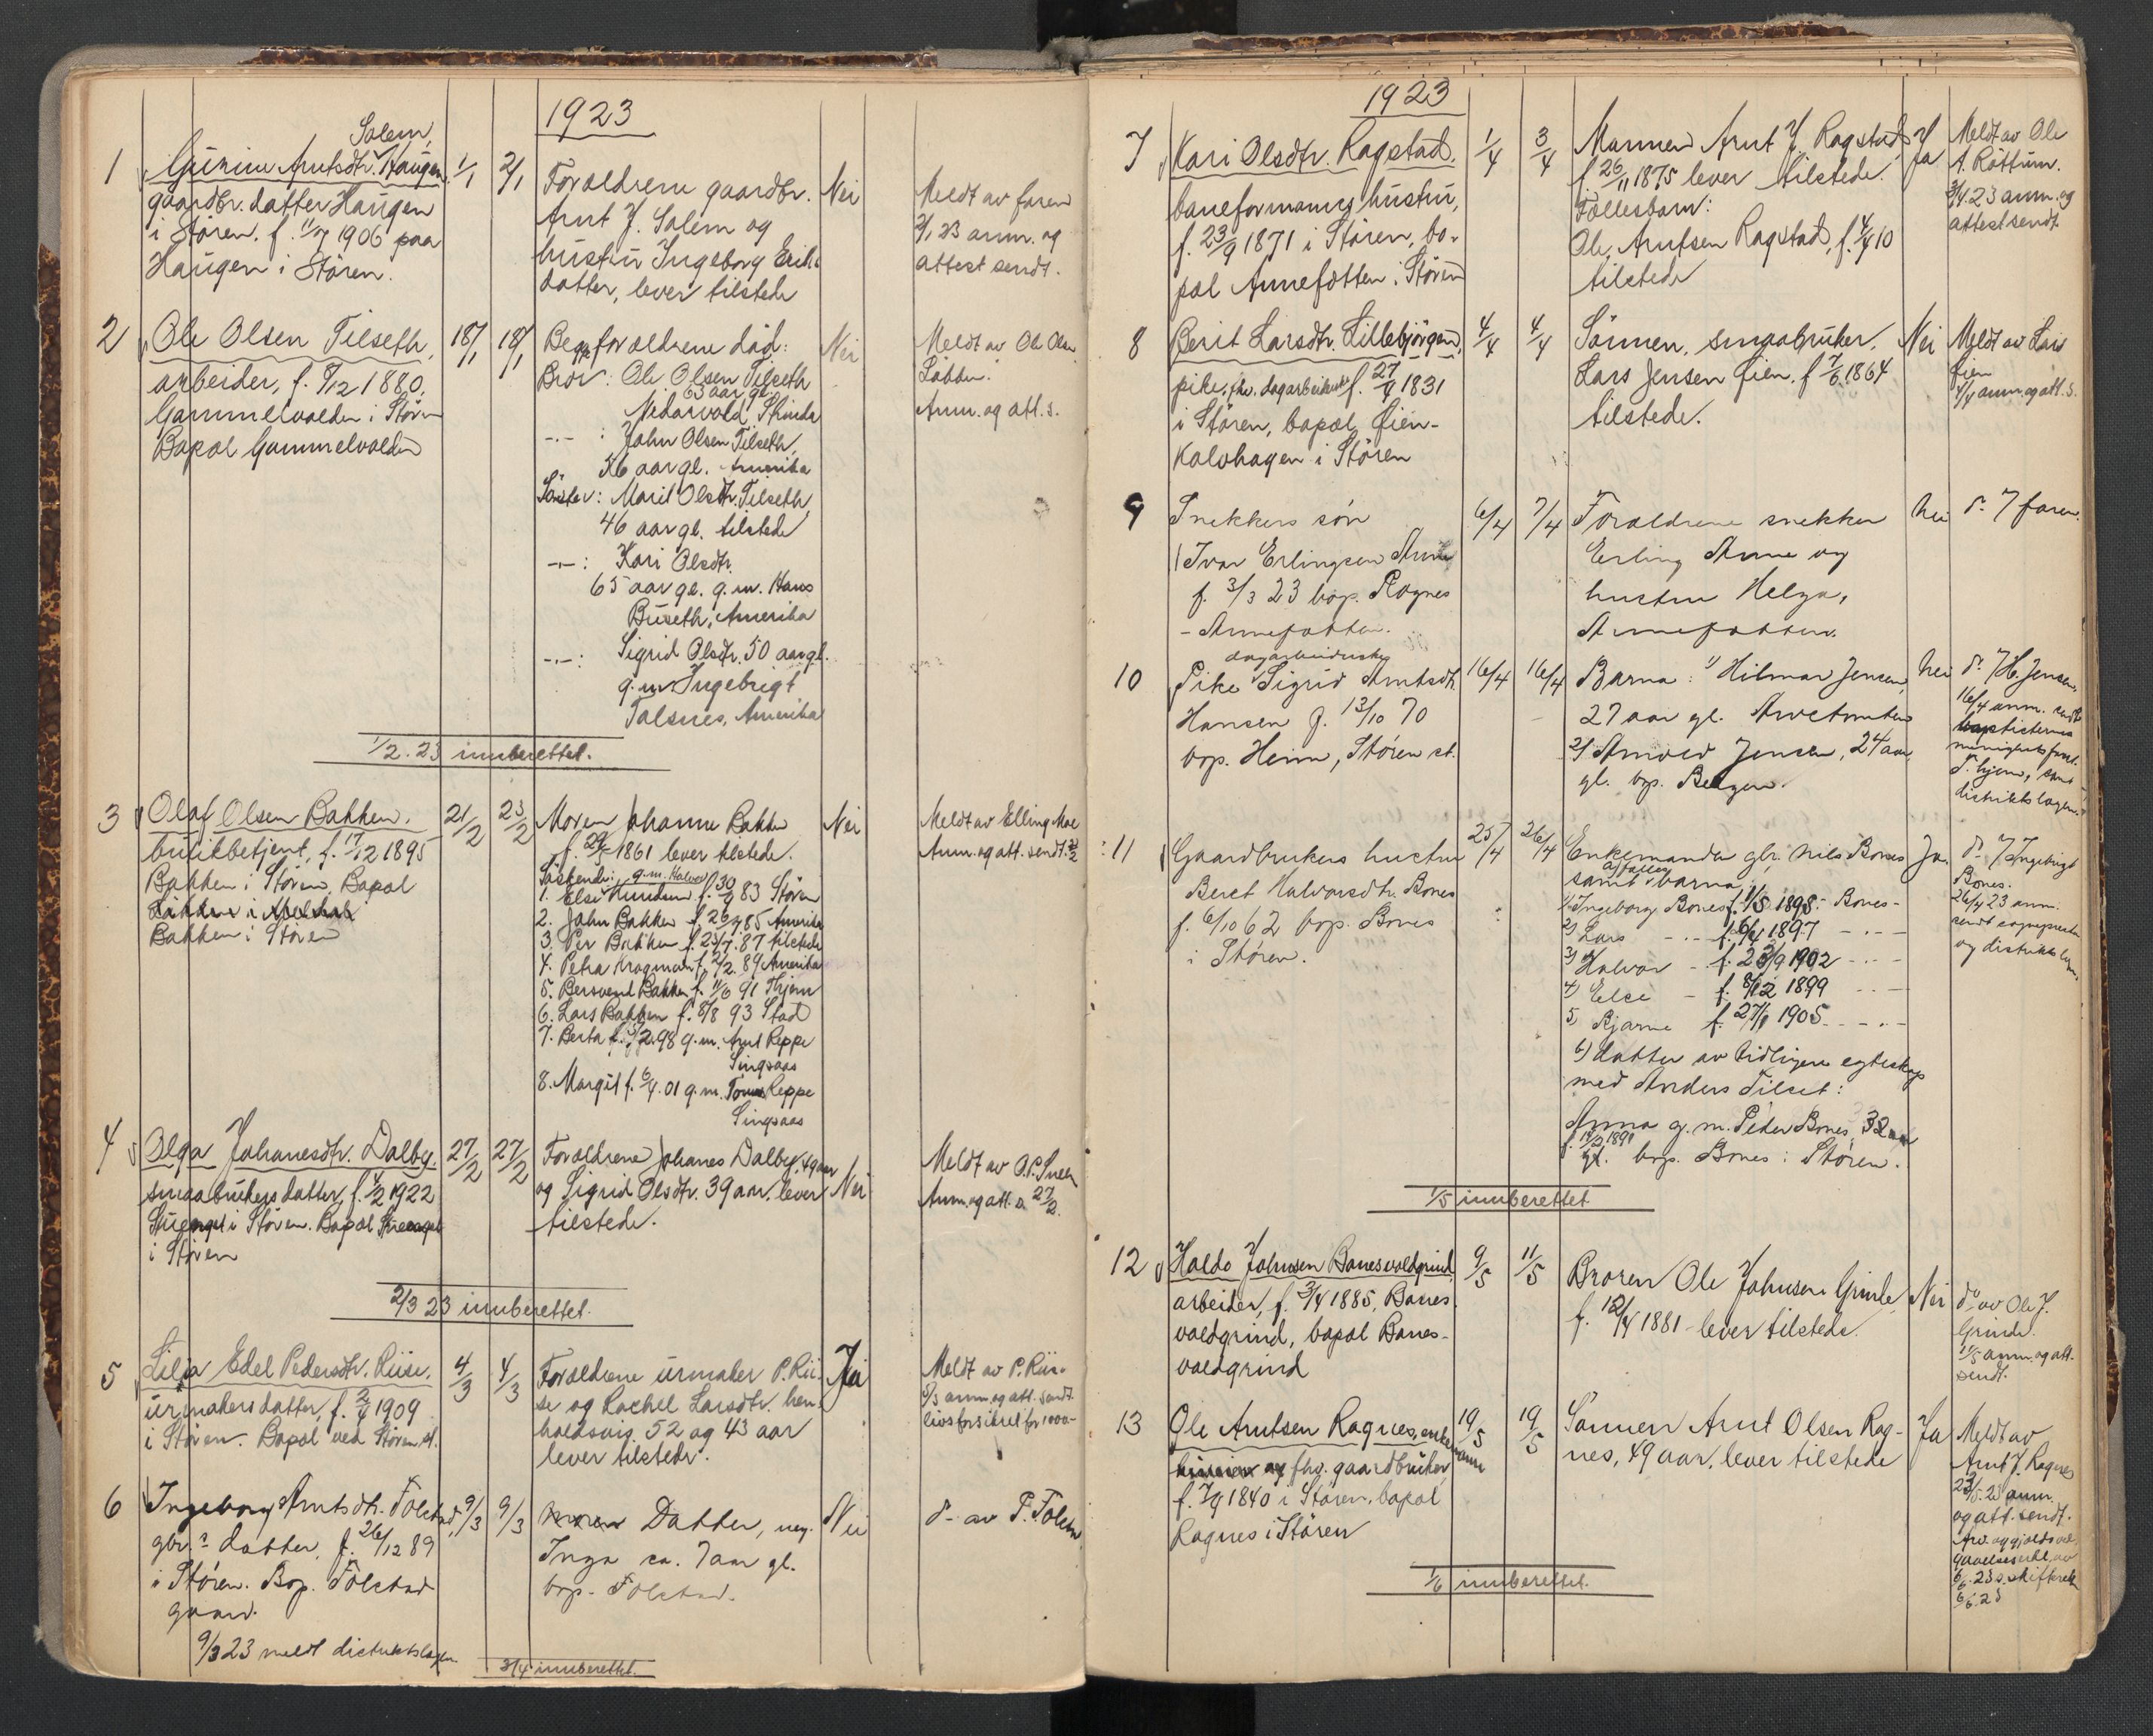 1923
Solem,
1 Gurine Arntsdtr. Haugen 1/1 2/1 Forældrene gaardbr. Nei Meldt av faren
gaardbr. datter Haugen Arnt J. Solem og 2/1 23 anm. og
i Støren. f. 1906 paa hustru Ingeborg Eriks attest sendt.
Haugen i Støren. datter, lever tilstede
2 Ole Olsen Tilseth, 18/1 18/1 Begge forældrene død: Nei Meldt av Ole Olsen
arbeider, f. 8/12 1880, Bror: Ole Olsen Tilseth Løbben.
63 aar gl.
Gammelvolden i Støren Nedarvold, Strinda Anm. og att. s.
Bopæl Gammelvolden -.- : John Olsen Tilseth,
56 aar gl. Amerika
Søster: Marit Olsdtr. Tilseth,
46 aar gl. tilstede
-.- : Kari Olsdtr.
65 aar gl. g.m. Hans
Buseth, Amerika
-.- : Sigrid Olsdtr. 50 aar gl.
g.m. Ingebrigt
Talsnes, Amerika
1/2. 23 innberettet.
3 Olaf Olsen Bakken. 21/2 23/2 Moren Johanne Bakken Nei Meldt av Elling Moe
butikbetjent, f. 17/12 1895 f. 29/5 1861 lever tilstede. Anm. og att. sendt 23/2
Bakken i Støren. Bopæl Søskende: g.m. Halvor
Bakken i 1. Else Knudsen f. 30/9 83 Støren
Bakken i Støren 2. John Bakken f. 26/4 85 Amerika
3. Per Bakken f. 23/7. 87 tilstede
4. Petra Kragmoen f. 2/2. 89 Amerika
5. Bersvend Bakken f. 11/6 91 Thjem
6. Lars Bakken f. 8/8 93 Stad
7. Berta f. 5/2. 98 g.m. Arnt Reppe
Singsaas
8. Margit f. 6/4. 01 g.m. Tomas Reppe
Singsaas
4 Olga Johanesdtr. Dalby. 27/2 27/2 Forældrene Johanes Dalby, 49 aar Nei Meldt av O.P.
smaabrukers datter, f. 1/2 1922 og Sigrid Olsdtr. 39 aar, lever Anm. og att. s. 27/2.
i Støren. Bopæl tilstede.
i Støren
2/3 23 innberettet.
5 Lilja Edel Pedersdtr. Riise. 4/3 4/3 Forældrene urmaker P. Rii- Ja Meldt av P. Riise
urmakers datter, f. 2/4 1909 se og Rachel Larsdtr. hen- 5/3 anm. og att. sendt.
i Støren. Bopæl ved Støren st. holdsvis. 52 og 43 aar livsforsikret for 1000-
lever tilstede.
6 Ingeborg Arntsdtr. Folstad, 9/3 9/3 Datter, ung. Nei d- av P. Folstad
gbr.s datter, f. 26/12 89 Inga ca. 7 aar gl.
i Støren. Bop. Folstad bop. Folstad.
gaard.
9/3 23 meldt distriktslægen.
3/4 innberettet.
1923
7 Kari Olsdtr. Ragstad. 1/4 3/4 Mannen Arnt J. Ragstad, Ja Meldt av Ole
baneformanns hustru, f. 26/11 1875 lever tilstede. A. Røttum.
f. 23/9 1871 i Støren, bo- Fællesbarn: 3/4. 23 anm. og
pæl Annefætten i Støren Ole, Arntsen Ragstad, f. 4/4 10 attest sendt.
tilstede
8 Berit Larsdtr. Lillebjørgen, 4/4 4/4 Sønnen, smaabruker, Nei Meldt av Lars
pike, fhv. dagarbeiderske f. 27/4 1831 Lars Jensen Øien, f. 7/6 1864 Øien
i Støren, bopæl Øien- tilstede. 4/4 anm. og att. s.
Kalvhagen i Støren
9 Snekkers søn 6/4 7/4 Forældrene snekker Nei d- 7 faren.
Ivar Erlingsen Anne Erling Anne og
f. 3/3 23 bop. Rognes hustru Helga,
- Annefætten. Annefætten.
dagarbeiderske
10 Pike Sigrid Arntsdtr. 16/4 16/4 Barna: 1/ Hilmar Jensen, Nei d- 7 H. Jensen,
Hansen f. 13/10 70 27 aar gl. 16/4 anm. sendt
bop. Heim, Støren st. 2) Arnold Jensen, 24 aar baptisternes
gl. bop. Bergen. menighetsforst.
T.hjem, samt
distriktslægen.
11 Gaardbrukers hustru 25/4 26/4 Enkemanden gbr. Nils Bones Ja. d- 7 Ingebrigt
Beret Halvorsdtr. Bones samt barna: Bones.
f. 6/10 62 bop. Bones 1/ Ingeborg Bones f. 1/5 1895. Bones - 26/4 23 anm.
i Støren. 2) Lars - . - f. 6/4 1897 - . - sendt sogneprest
3) Halvor - f. 23/9 1902 - . - og distriktslægen.
4) Else - f. 8/12 1899 - . -
5) Bjarne f. 27/1 1905 - . -
6) datter av tidligere egteskap
med Anders Tilset:
Anna g.m. Peder Bones, 32 aar
f. 1891
gl. bop. Bones i Støren.
1/5 innberettet
12 Haldo Johnsen Bonesvoldgrind, 9/5 11/5 Broren Ole Johnsen Grinde, Nei do av Ole J.
arbeider, f. 3/4 1885, Bones- f. 12/4 1881 lever tilstede. Grinde.
voldgrind, bopæl Bones- 11/5 anm. og att.
voldgrind sendt.
13 Ole Arntsen Rognes, enkemann 19/5 19/5 Sønnen Arnt Olsen Rog- Ja Meldt av
fhv. gaardbruker, nes, 49 aar, lever tilstede Arnt J. Rognes
f. 7/9 1840 i Støren, bopæl 23/5. 23 anm.
Rognes i Støren og att. sendt.
6/6. 23 s. skifteretten
6/6. 23
1/6 innberettet.